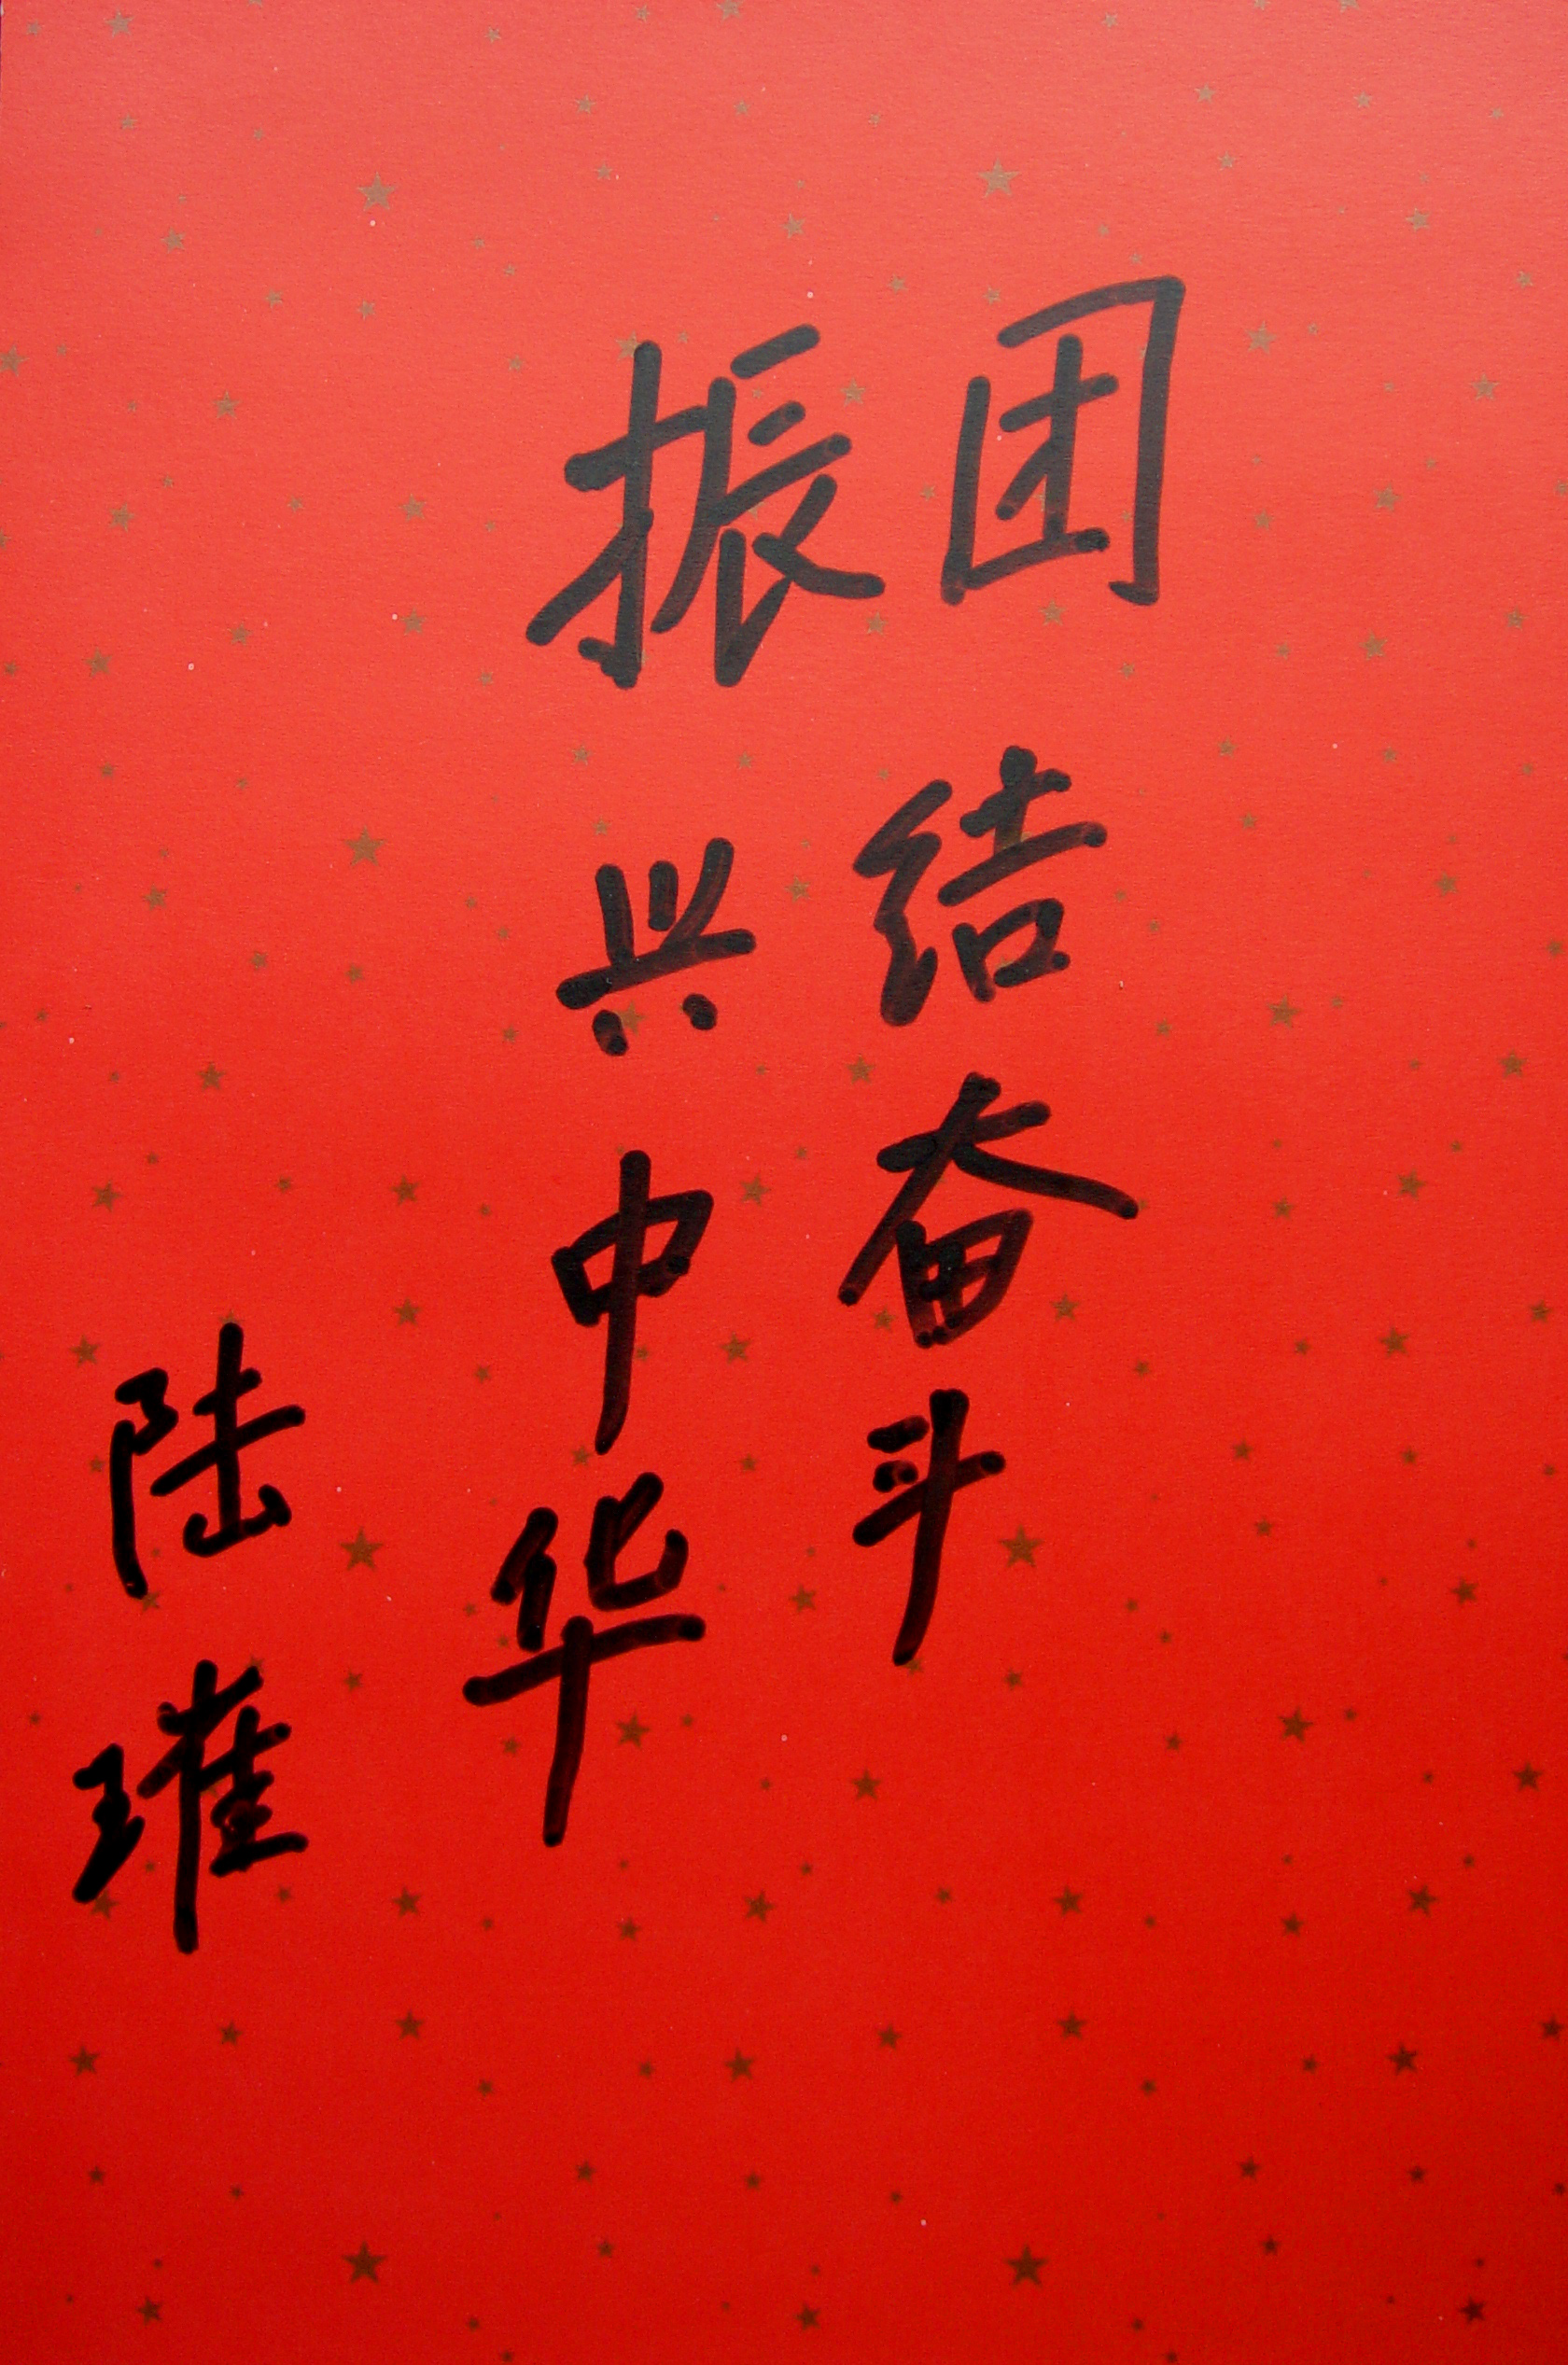 团结奋斗
振兴中华
陆璀